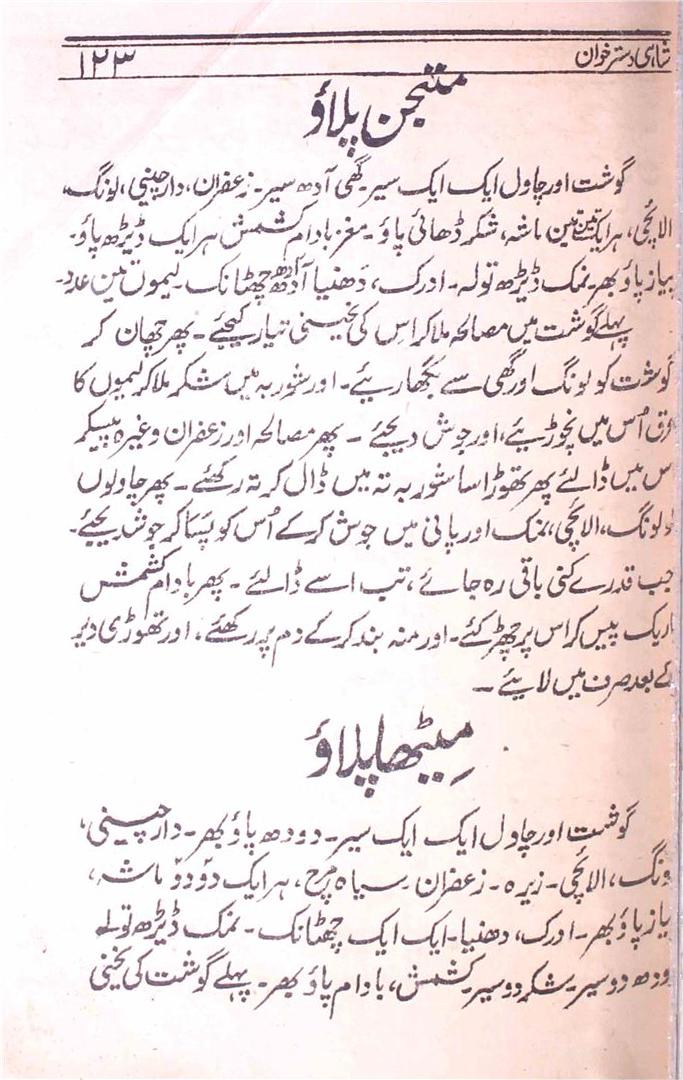 شاہی دسترخوان
۱۲۳
متنجن پلاؤ
گوشت اور چاول ایک ایک سیر۔ گھی آدھ سیر۔ زعفران، دارچینی، لونگ،
الائچی، ہر ایک تین تین ماشہ، شکر ڈھائی پاؤ۔ مغز بادام کشمش ہر ایک ڈیڑھ پاؤ۔
پیاز پاؤ بھر۔ نمک ڈیڑھ تولہ۔ ادرک، دھنیا آدھ آدھ چھٹانک۔ لیموں تین عدد۔
پہلے گوشت میں مصالحہ ملا کر اس کی یخنی تیار کیجئے۔ پھر چھان کر
گوشت کو لونگ اور گھی سے بگھاریئے۔ اور شوربہ میں شکر ملا کر لیموں کا
عرق اُس میں نچوڑیئے، اور جوش دیجئے ۔ پھر مصالحہ اور زعفران وغیرہ پیسکر
اس میں ڈالئے پھر تھوڑا سا شوربہ تہ میں ڈال کر تہ رکھئے۔ پھر چاولوں
کو لونگ، الائچی، نمک اور پانی میں جوش کر کے اُس کو پسا کر جوش دیجئے۔
جب قدرے کنی باقی رہ جائے، تب اسے ڈالئے ۔ پھر بادام کشمش
باریک پیس کر اس پر چھڑکئے۔ اور منہ بند کر کے دم پر رکھئے، اور تھوڑی دیر
کے بعد صرف میں لایئے ۔
میٹھا پلاؤ
گوشت اور چاول ایک ایک سیر۔ دودھ پاؤ بھر۔ دارچینی،
لونگ، الائچی۔ زیرہ ۔ زعفران سیاہ مرچ، ہر ایک دو دو ماشہ،
پیاز پاؤ بھر۔ ادرک، دھنیا۔ ایک ایک چھٹانک ۔ نمک ڈیڑھ تولہ
دودھ دو سیر۔ شکر دو سیر۔ کشمش، بادام پاؤ بھر۔ پہلے گوشت کی یخنی